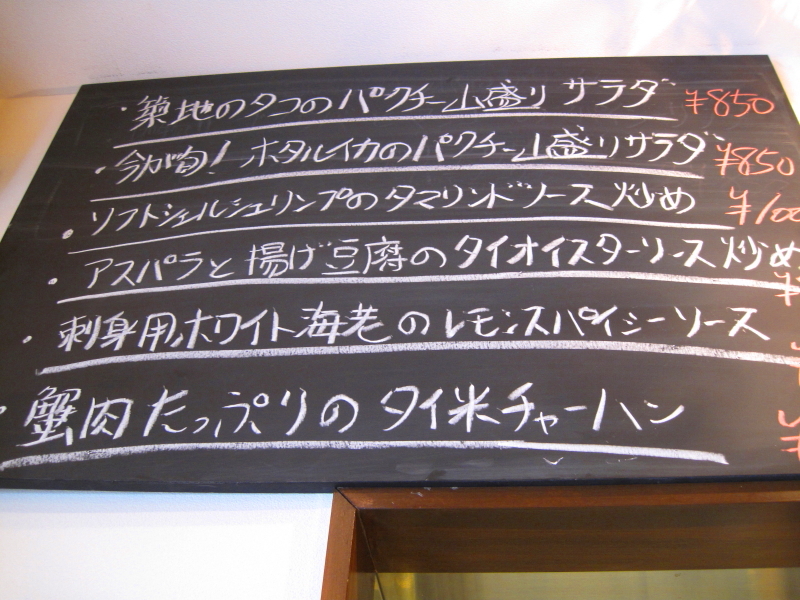 ・築地のタコのパクチー山盛りサラダ ¥850
・今が旬！ホタルイカのパクチー山盛りサラダ ¥850
・ソフトシェルシュリンプのタマリンドソース炒め ¥100
・アスパラと揚げ豆腐のタイオイスターソース炒め
・刺身用ホワイト海老のレモンスパイシーソース
・蟹肉たっぷりのタイ米チャーハン